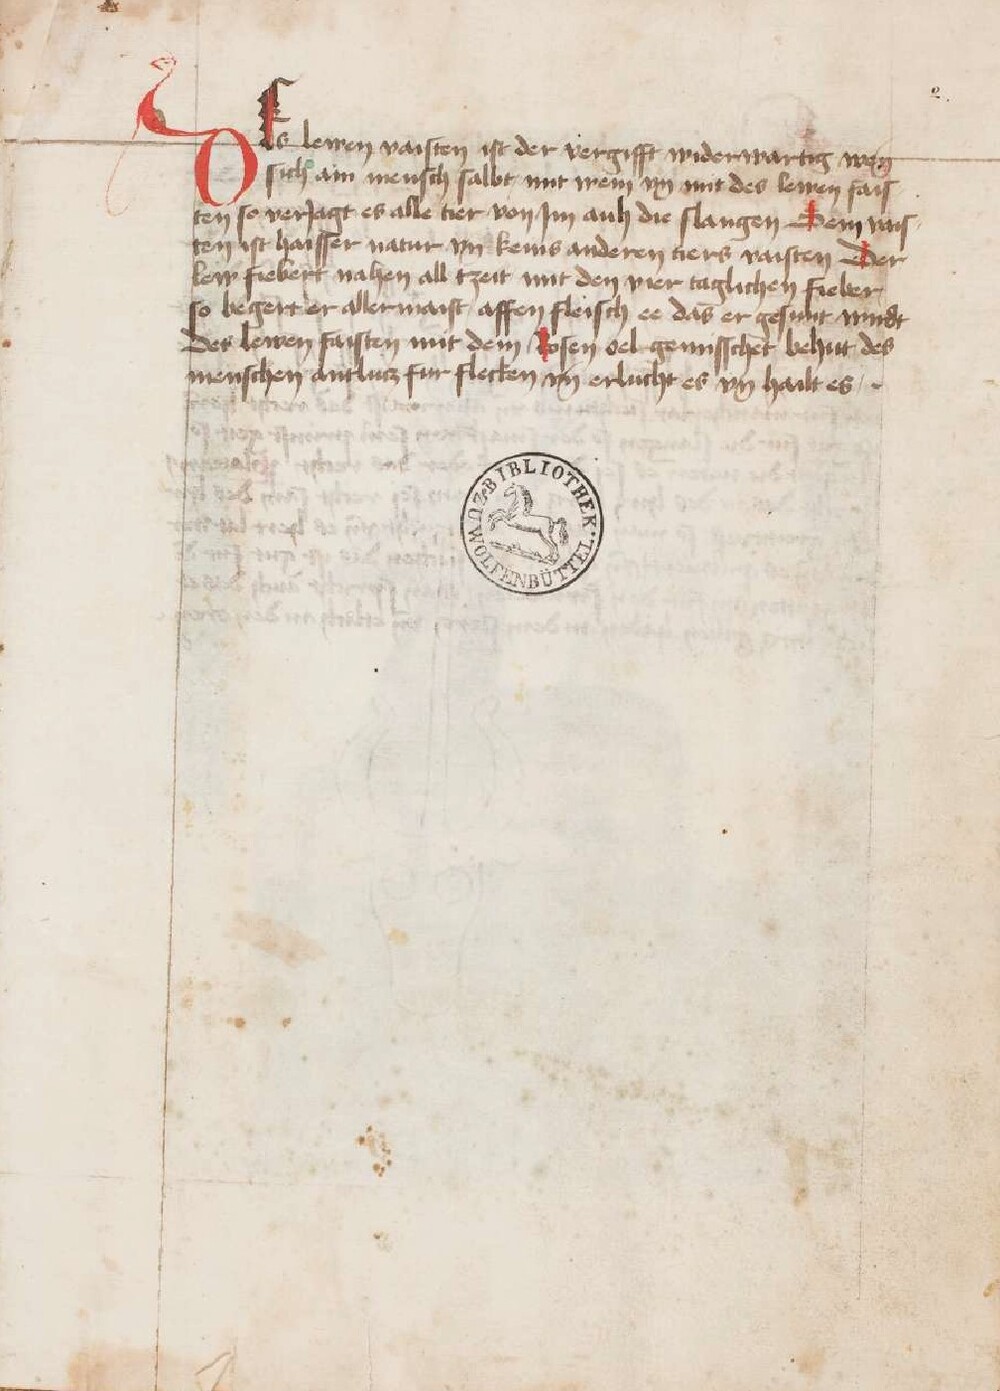 2.
DEs lewen vaisten ist der vergifft widerwartig wen̄
sich ain mensch salbt mit wein vn̄ mit des lewen fais
ten so verJagt es alle tier von Jm auh die slangen Sein vais
ten ist haisser natur vn̄ keins anderen tiers vaisten Der
lew fiebert nahen all tzeit mit den vier taglichen fieber
so begert er aller maist affen fleisch ee das er gesunt wirdt
Des lewen faisten mit dem Rosen oel gemisschet behut des
menschen antlucz fur flecken vn̄ erlucht es vn̄ hailt es
BIBLIOTHEK
ZU WOLFENBÜTTEL